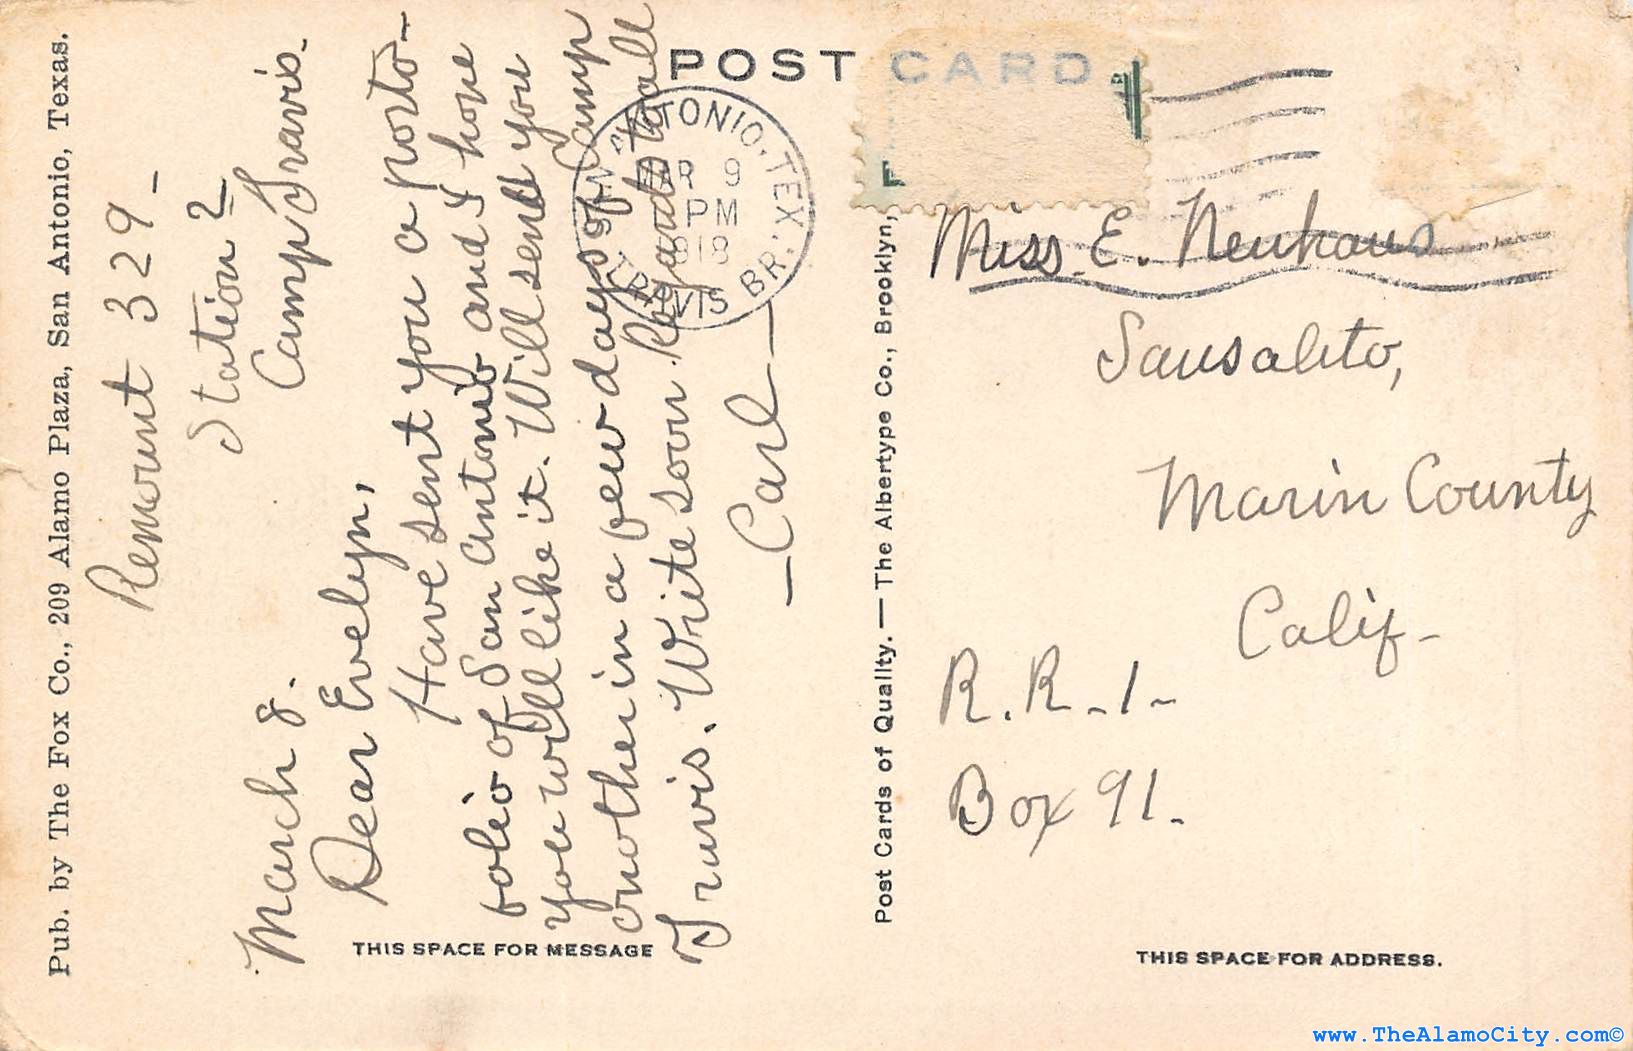 Pub. by The Fox Co., 209 Alamo Plaza, San Antonio, Texas.
Remount 329 -
Station 2
Camp Travis.
March 8.
Dear Evelyn,
Have sent you a porto-
folio of San Antonio and I hope
you will like it. Will send you
another in a few days of Camp
Travis. Write soon. Regards to all
- Carl -
THIS SPACE FOR MESSAGE
POST CARD
ANTONIO, TEX.
MAR 9
PM
1918
TRAVIS BR.
Post Cards of Quality. — The Albertype Co., Brooklyn,
Miss. E. Neuhaus
Sausalito,
Marin County
Calif -
R. R. - 1 -
Box 91.
THIS SPACE FOR ADDRESS.
www.TheAlamoCity.com©